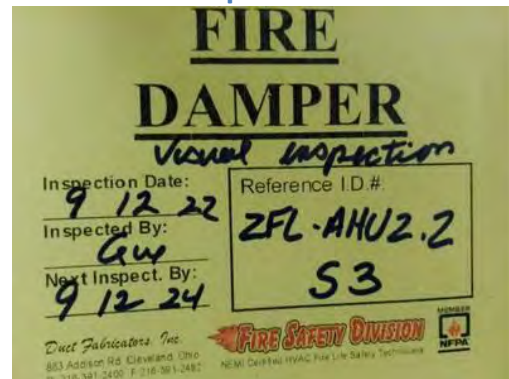 FIRE
DAMPER
Visual inspection
Inspection Date:
9 12 22
Inspected By:
Next Inspect. By:
9 12 24
Reference I.D.#.
2FL-AHU2.2
S3
Duct Fabricators, Inc.
883 Addison Rd. Cleveland, Ohio
FIRE SAFETY DIVISION
NEMI Certified HVAC Fire Life Safety Technicians
MEMBER
NFPA